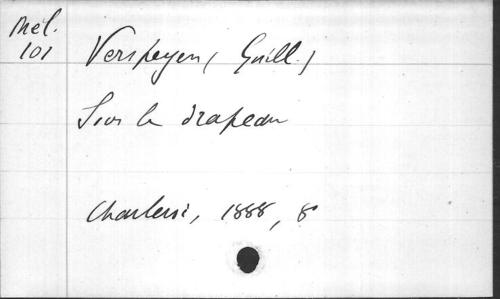 Mél.
101
Verspeyen (Guill.)
Sous le drapeau
Charleroi, 1888, 8°